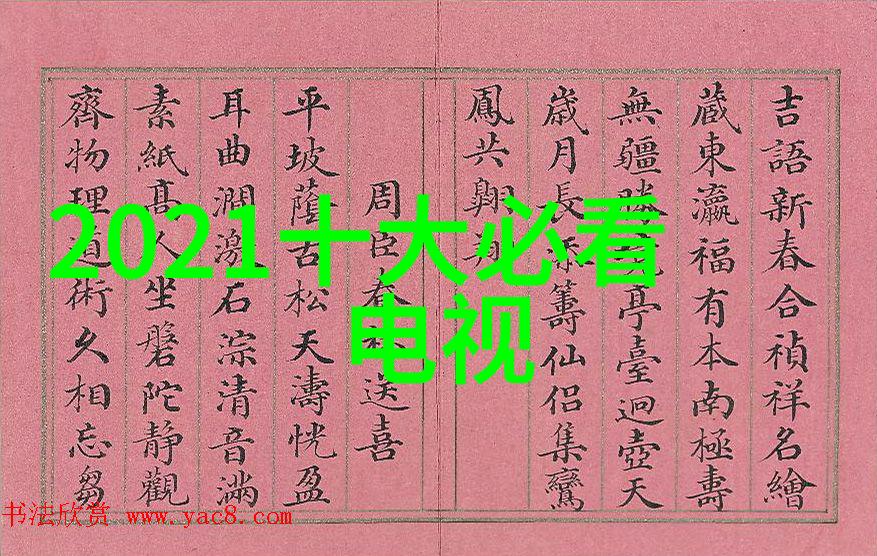 吉語新春合禎祥名繪
藏東瀛福有本南極壽
無疆勝亭臺迥壺天
歲月長添籌仙侶集鸞
鳳共翱翔
周臣春送喜
平坡蔭古松天濤恍盈
耳曲澗激石淙清音滿
素紙高人坐磐陀靜觀
齊物理道術久相忘芻
2021十大必看
电视
书法欣赏 www.yac8.com